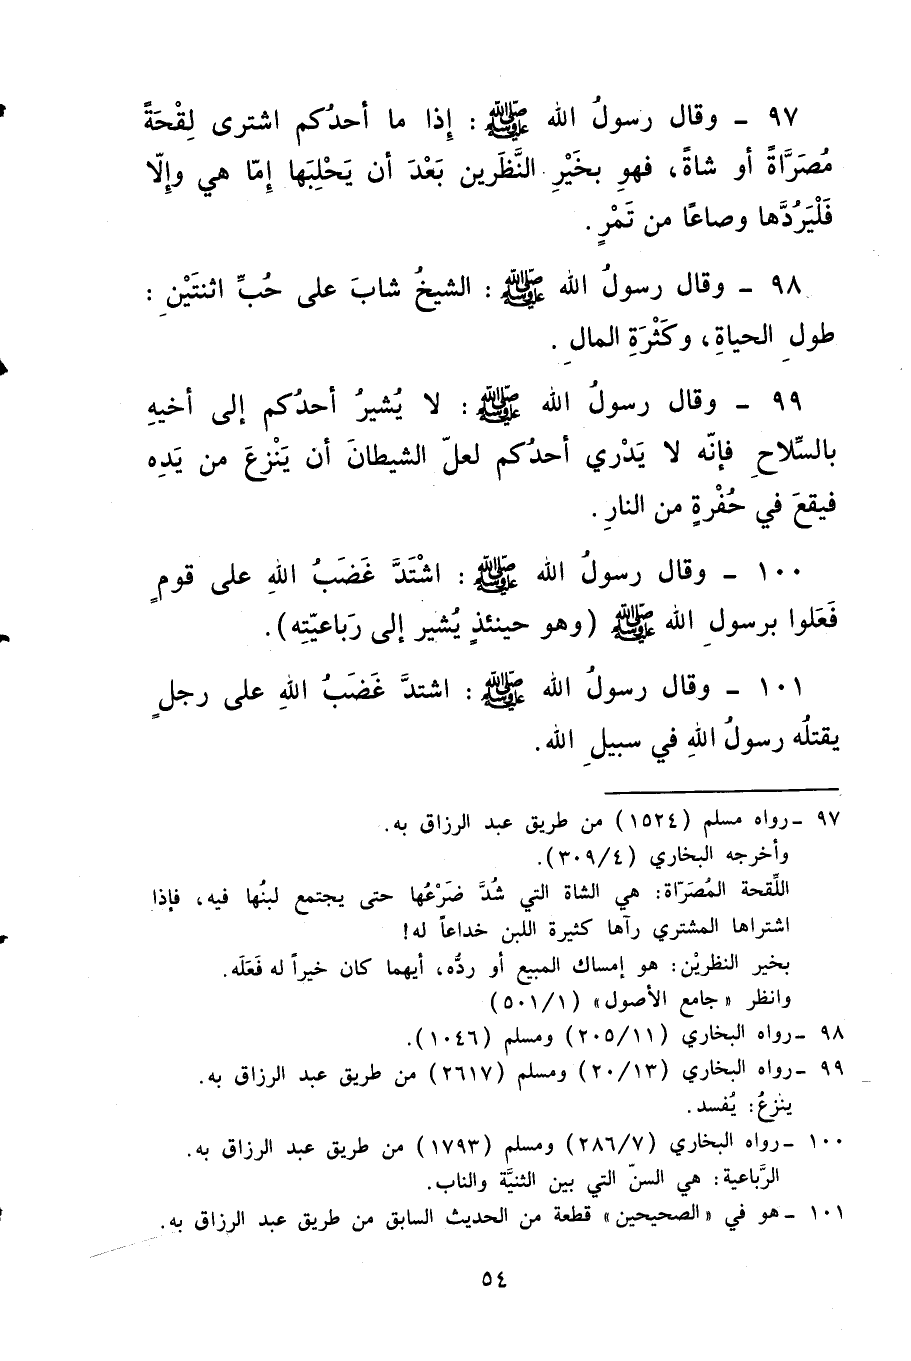 ٩٧ - وقال رسولُ الله ﷺ : إِذا ما أحدُكم اشترى لِقْحَةً
مُصَرَّاةً أو شاةً، فهو بخَيْرِ النَّظَرين بَعْدَ أن يَحْلِبَها إِمّا هي وإِلّا
فَلْيَرُدَّها وصاعًا من تَمْرٍ .
٩٨ - وقال رسولُ الله ﷺ : الشيخُ شابَ على حُبِّ اثنتَيْنِ :
طولِ الحياةِ، وكَثْرَةِ المالِ .
٩٩ - وقال رسولُ الله ﷺ : لا يُشيرُ أحدُكم إلى أخيهِ
بالسِّلاحِ فإنّه لا يَدْري أحدُكم لعلّ الشيطانَ أن يَنْزعَ من يَدِه
فيقعَ في حُفْرةٍ من النارِ .
١٠٠ - وقال رسولُ الله ﷺ : اشْتَدَّ غَضَبُ اللهِ على قومٍ
فَعَلوا برسولِ الله ﷺ (وهو حينئذٍ يُشير إلى رَباعيّتِه).
١٠١ - وقال رسولُ الله ﷺ : اشتدَّ غَضَبُ اللهِ على رجلٍ
يقتلُه رسولُ اللهِ في سبيلِ الله.
٩٧ - رواه مسلم (١٥٢٤) من طريق عبد الرزاق به.
وأخرجه البخاري (٣٠٩/٤).
اللِّقحة المُصَرّاة: هي الشاة التي شُدَّ ضَرْعُها حتى يجتمع لبنُها فيه، فإذا
اشتراها المشتري رآها كثيرة اللبن خداعاً له!
بخير النظريْن: هو إمساك المبيع أو ردُّه، أيهما كان خيراً له فَعَلَه.
وانظر «جامع الأصول» (٥٠١/١)
٩٨ - رواه البخاري (٢٠٥/١١) ومسلم (١٠٤٦).
٩٩ - رواه البخاري (٢٠/١٣) ومسلم (٢٦١٧) من طريق عبد الرزاق به.
ينزعُ: يُفسد.
١٠٠ - رواه البخاري (٢٨٦/٧) ومسلم (١٧٩٣) من طريق عبد الرزاق به.
الرَّباعية: هي السنّ التي بين الثنيَّة والناب.
١٠١ - هو في «الصحيحين» قطعة من الحديث السابق من طريق عبد الرزاق به.
٥٤